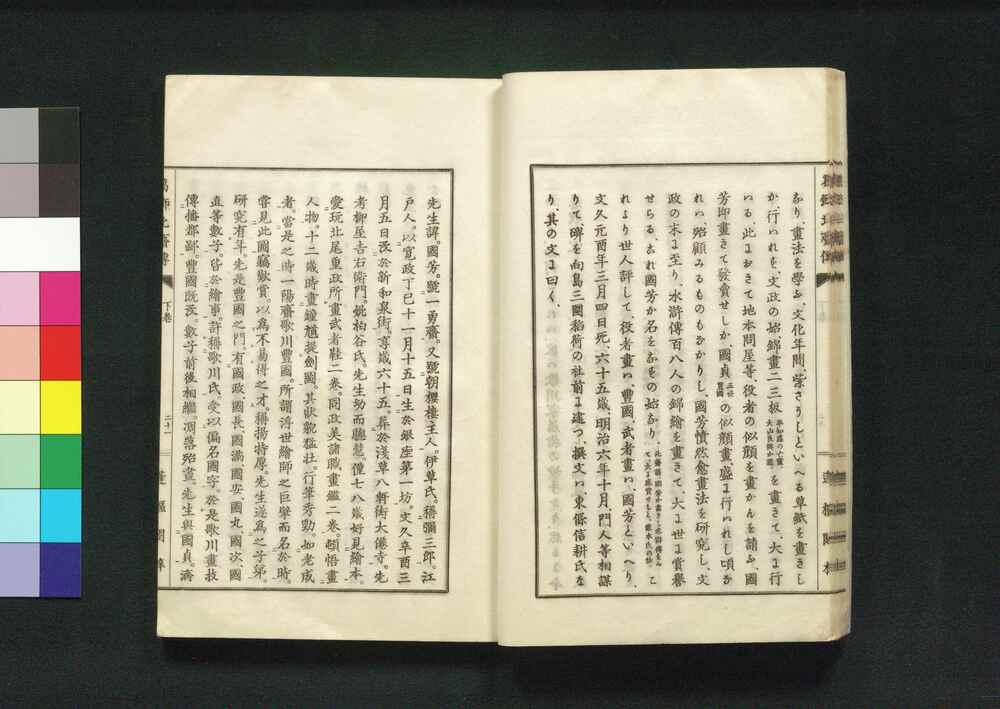 なり、畫法を學ぶ、文化年間、御無事忠臣藏といへる草紙を畫きし
か、行はれを、文政の始錦畫二三板平知盛の亡靈、大山良辨か瀧を畫きて、大に行
いる、此におきて地本問屋等、役者の似顔を畫かんを請ふ、國
芳即畫きて發賣せしか、國貞三世豐國の似顔畫、盛に行はれし頃か
れハ、殆顧みるものもなかりし、國芳憤然愈畫法を研究し、文
政の末に至り、水滸傳百八人の錦繪を畫きて、大に世に賞譽
せらる、これ國芳か名をなをの始なり、
れより世人評して、役者畫ハ、豐國、武者畫ハ、國芳といへり、
文久元酉年三月四日死、六十五歳、明治六年十月、門人等相謀
りて碑を向島三圍稻荷の社前に建つ、撰文ハ、東條信耕氏な
り、其の文に曰く、
先生諱。國芳。號一勇齋。又號朝櫻樓主人。伊草氏。稱彌三郎。江
戸人。以寛政丁巳十一月十五日生於銀座第一坊。文久辛酉三
月五日歿於新和泉街。享歳六十五。葬於淺草八軒街大僊寺。先
考柳屋吉右衛門。妣柏谷氏。先生幼而聽慧。僅七八歳好見繪本。
愛玩北尾重政所畫武者鞋二卷。同政美諸職畫鑑二卷。頓悟畫
人物。十二歳時畫鐘馗提劍圖。其狀貌猛壯。行筆秀勁。如老成
者。當是之時一陽齋歌川豐國。所謂濟世繪師之巨擘而名於時。
嘗見此圖竊歎賞。以爲不易得之才。稱揚特厚。先生遂爲之子弟。
研究有年。先是豐國之門。有國政國長。國滿國安。國丸國次。國
直等數子。皆於繪事。許稱歌川氏。受以偏名國字。於是歌川畫技
傳播都鄙。豐國既歿。數子前後相繼。凋落殆盡。先生與國貞。濟
下卷
二十一